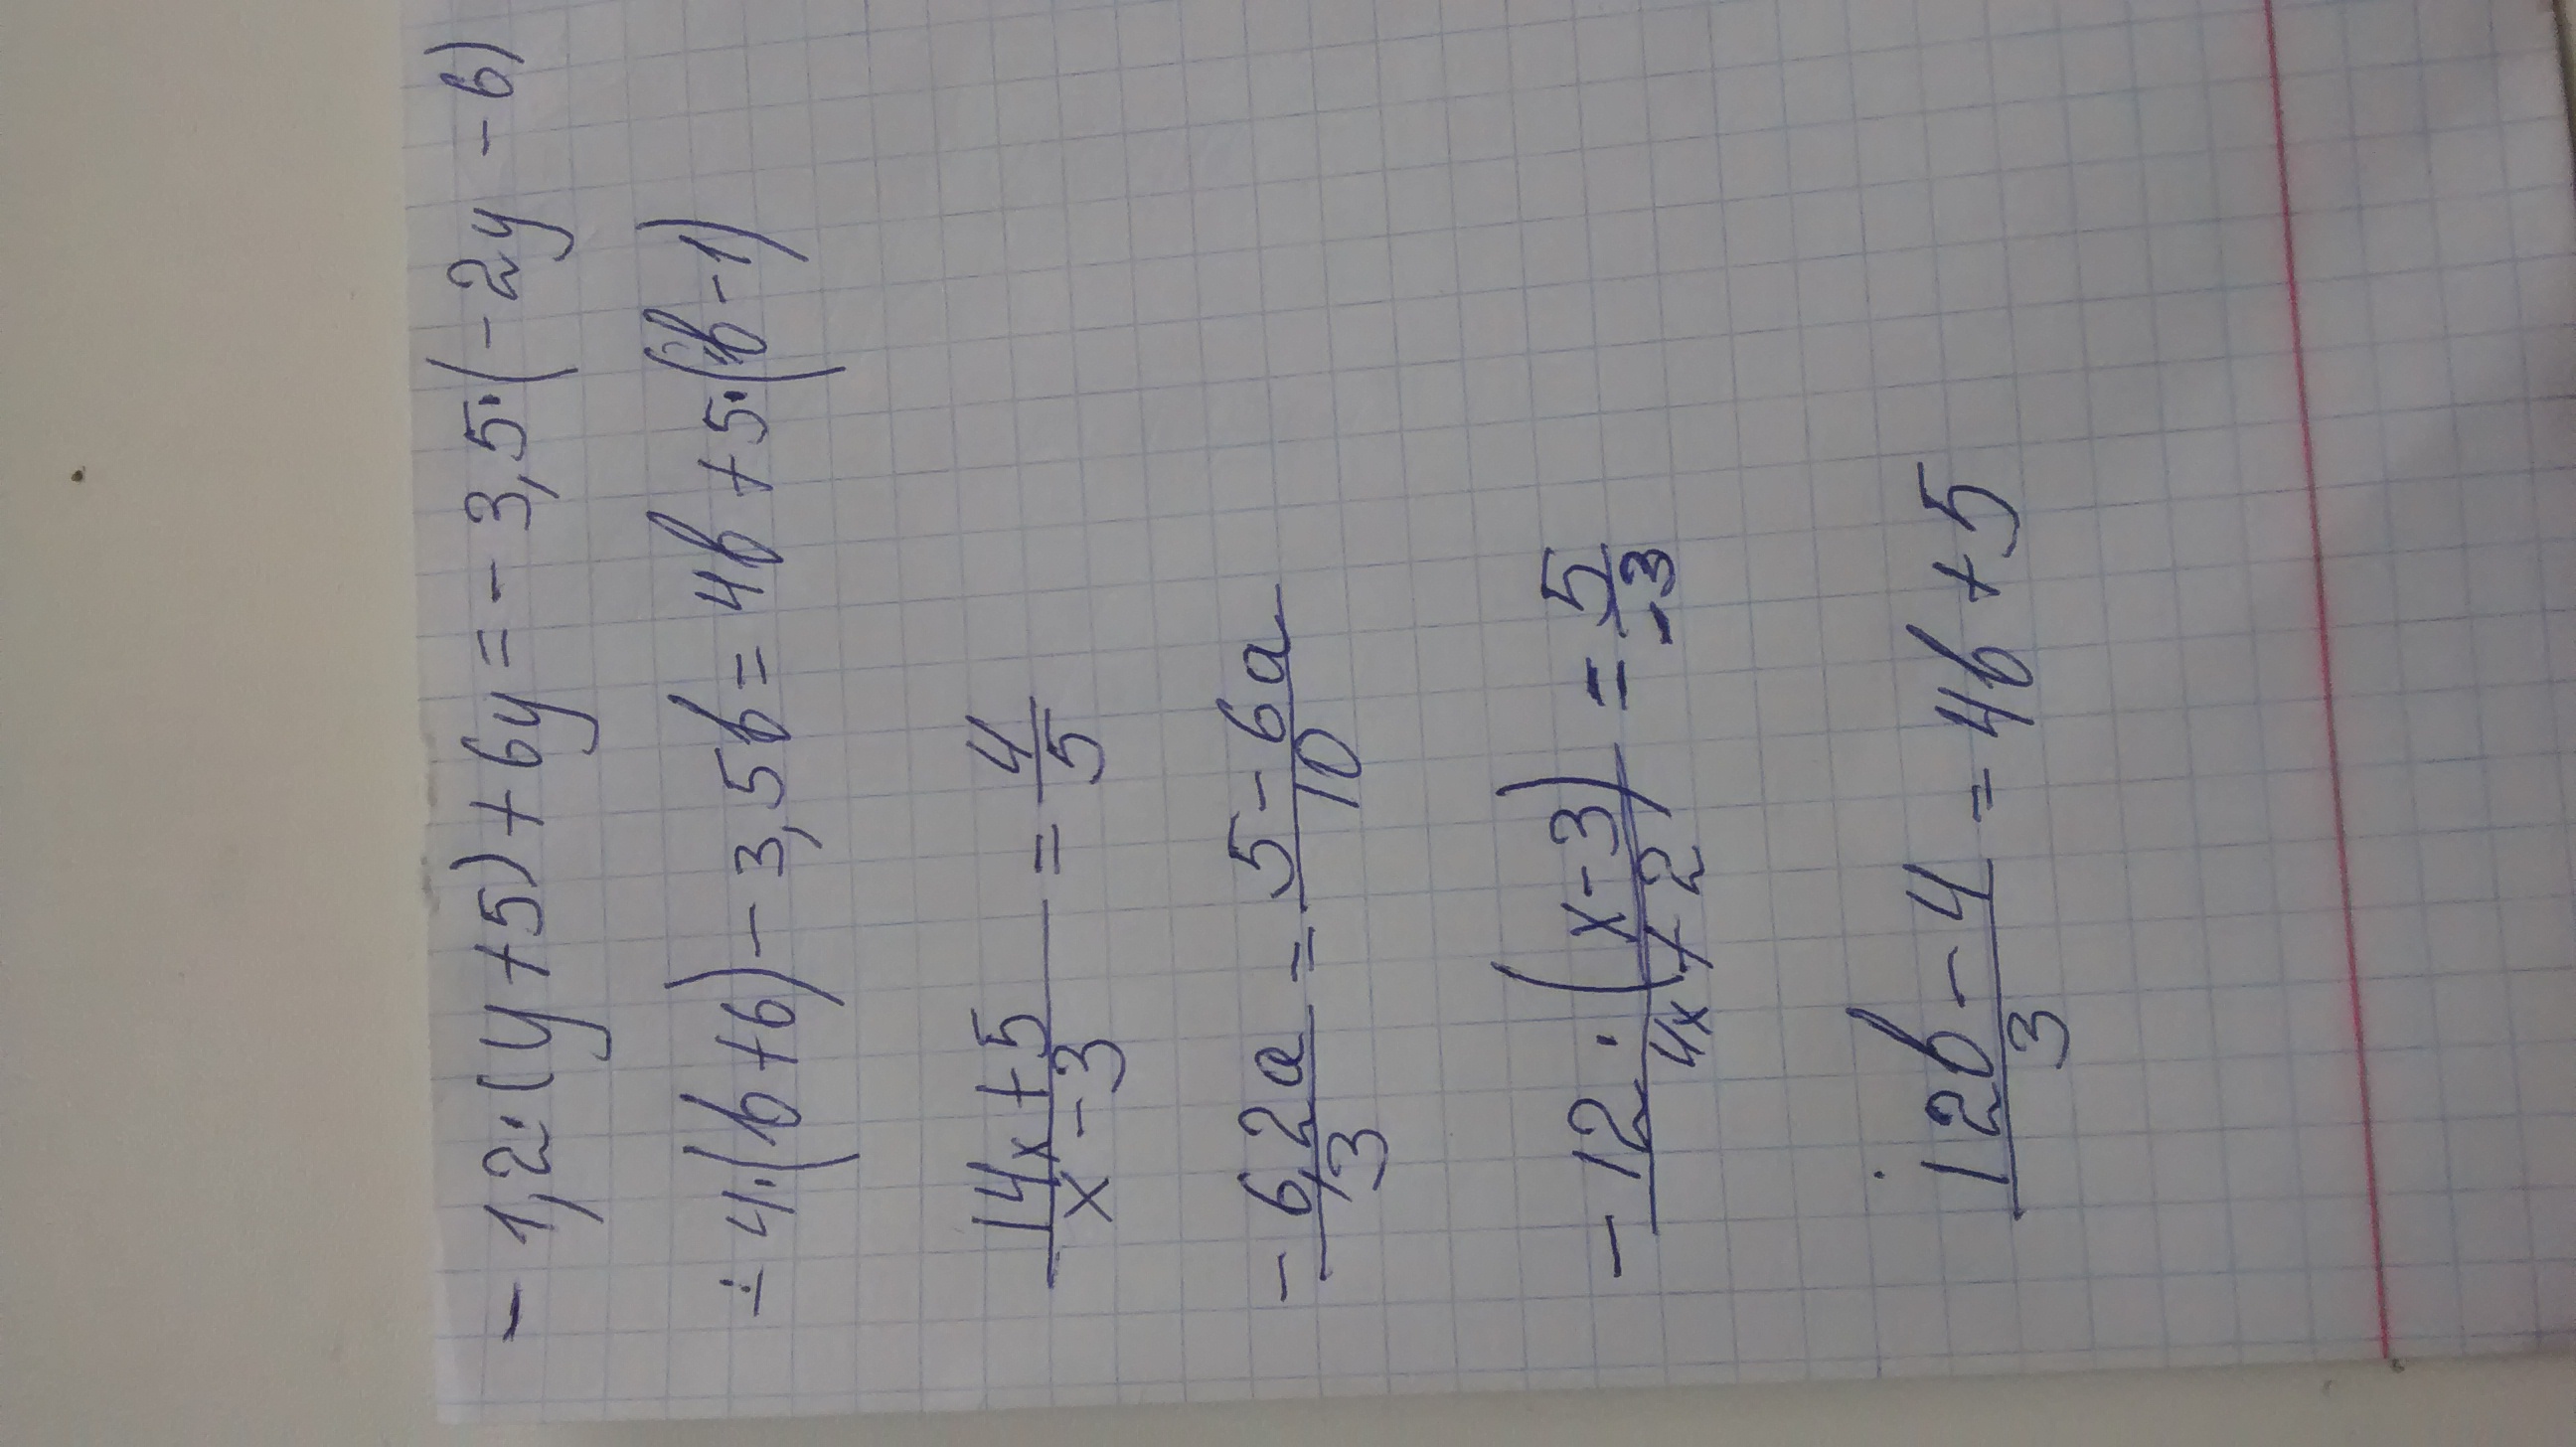 -1,2·(y+5)+6y=-3,5·(-2y-6)
-4·(b+6)-3,5b=4b+5·(b-1)
\frac{14x+5}{x-3}=\frac{4}{5}
-\frac{6,2a}{3}=\frac{5-6a}{10}
-\frac{12·(x-3)}{4x+2}=\frac{5}{-3}
\frac{12b-4}{3}=4b+5